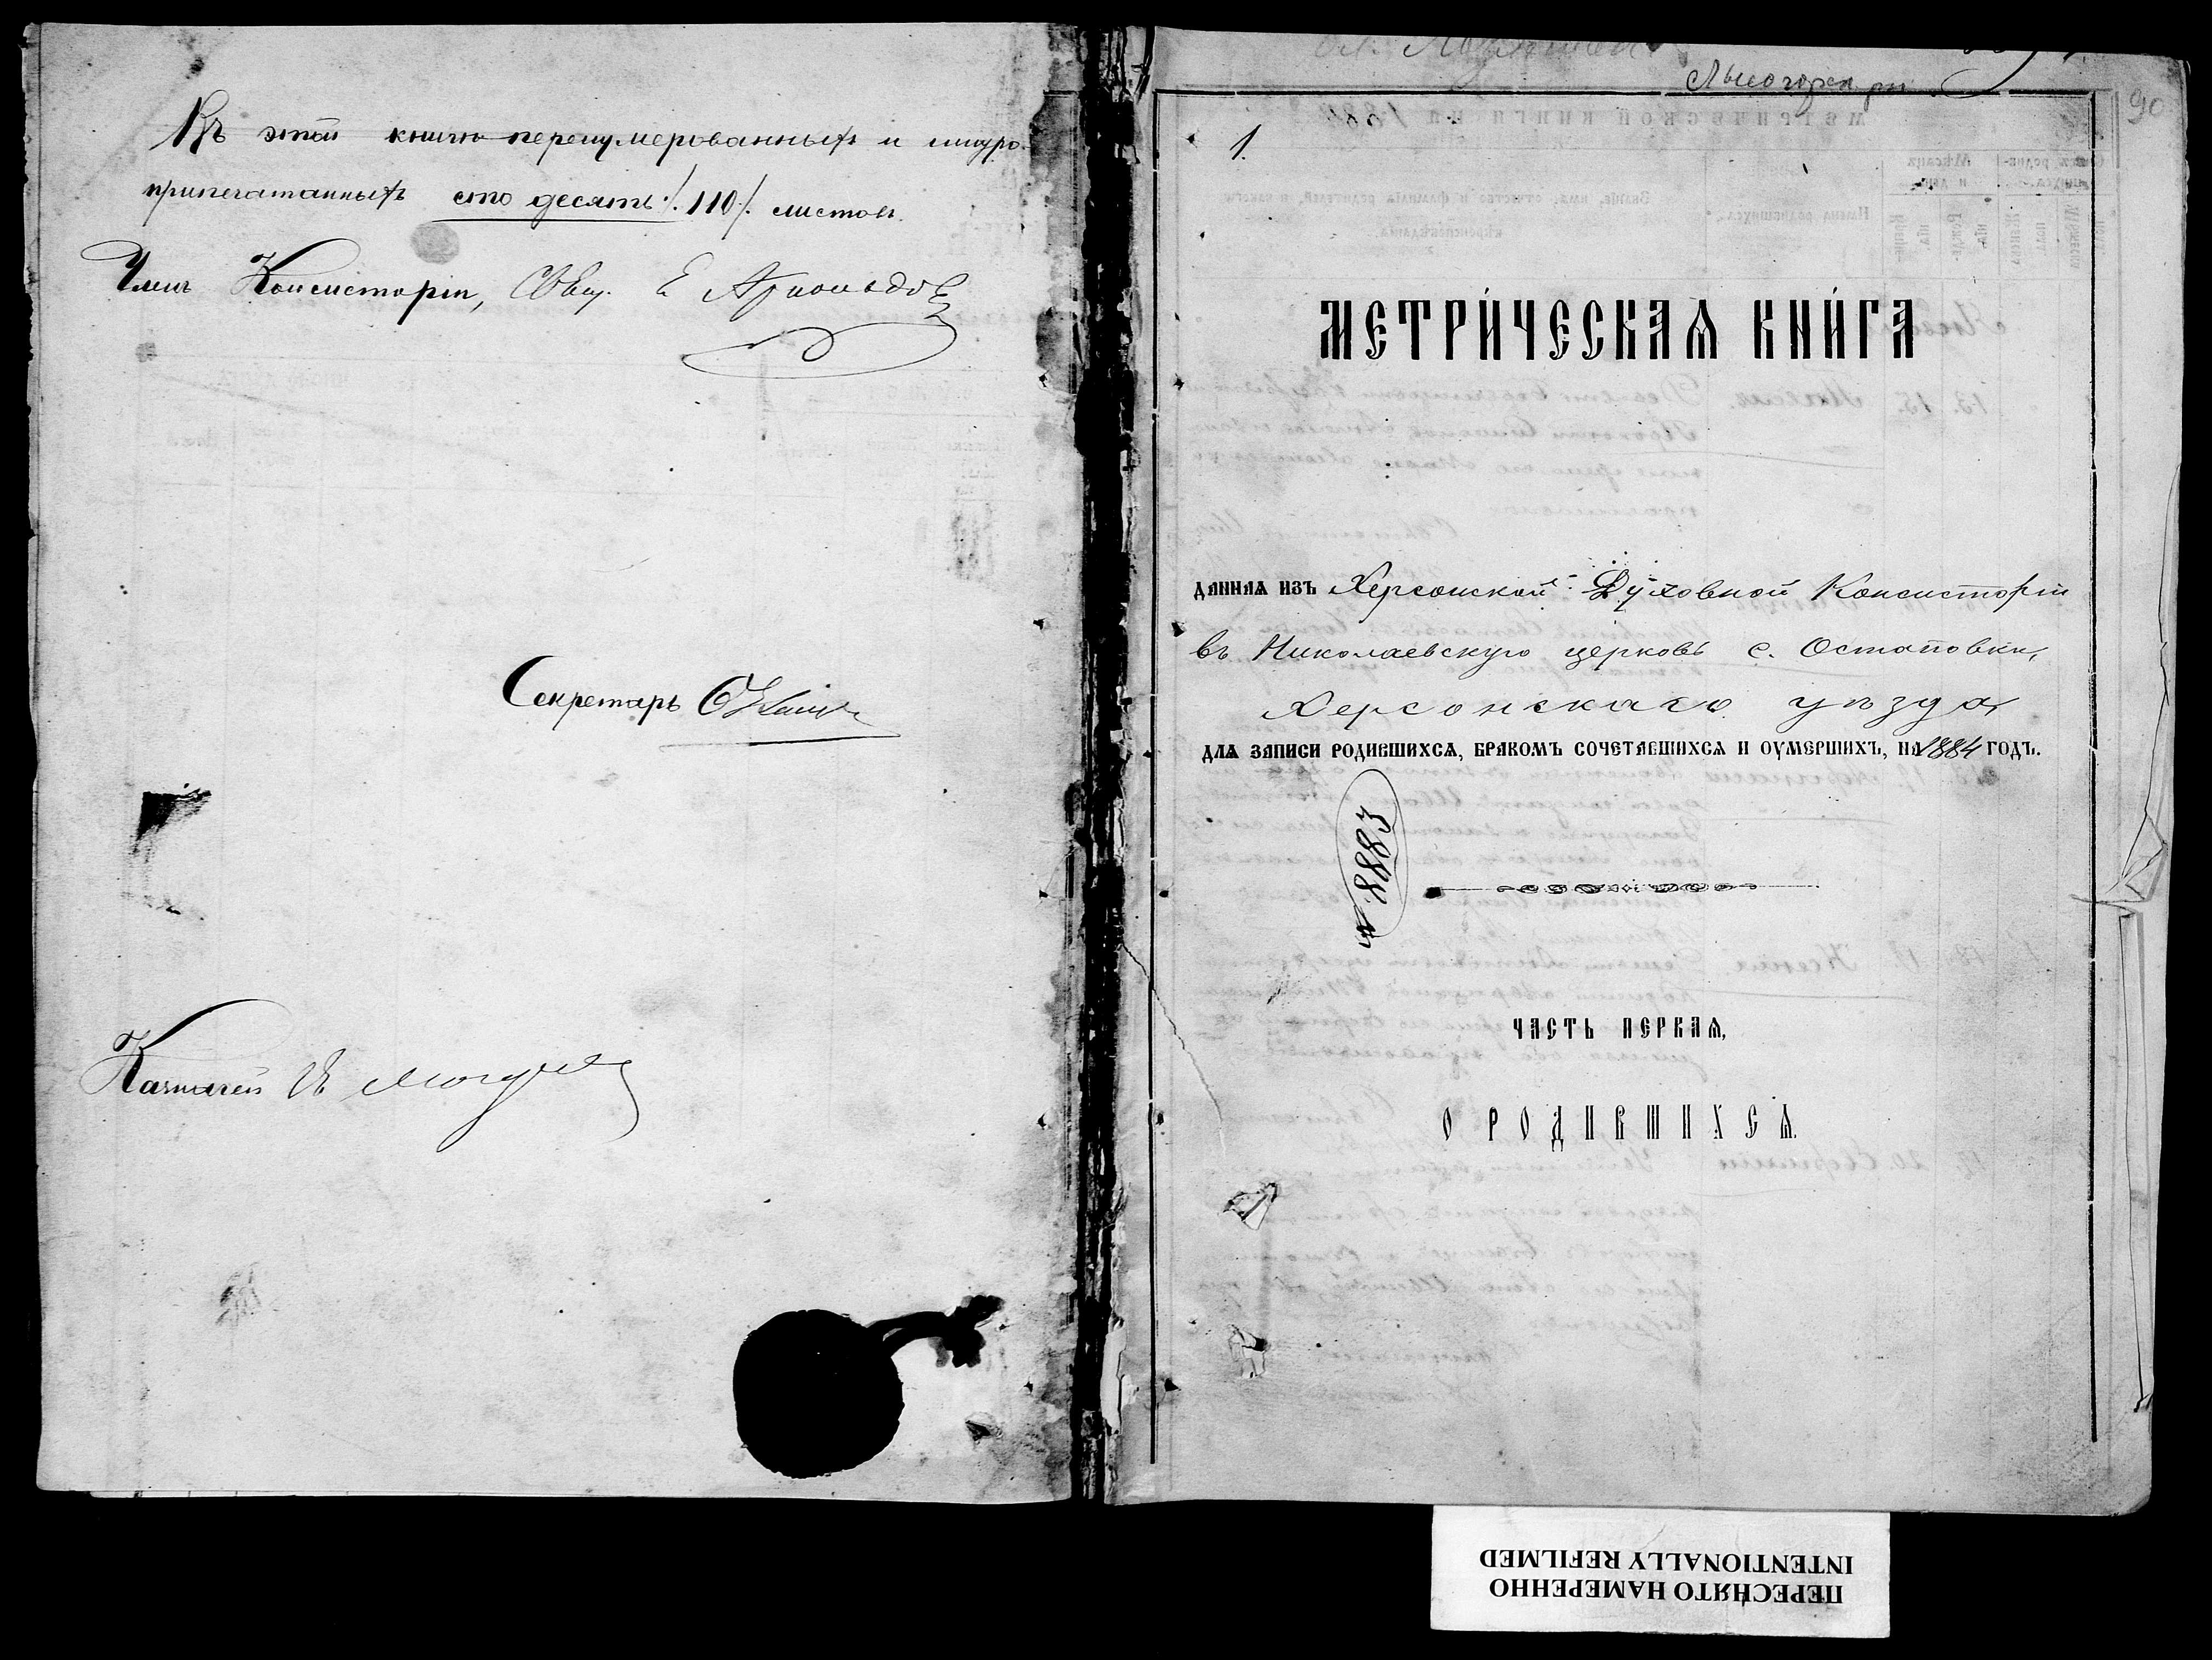 Въ этой книгѣ перенумерованныхъ и шнуро-
припечатанныхъ сто десять /.110/. листовъ.
Членъ Консисторіи, Свящ. Е Арнольдовъ
Секретарь
Казначей
90
1.
МЕТРИ́ЧЕСКАѦ КНИ́ГА
ДАННАѦ ИЗЪ Херсонской Духовной Консисторіи
въ Николаевскую церковь с. Остаповки,
Херсонскаго уѣзда
ДЛѦ ЗАПИСИ РОДИВШИХСѦ, БРАКОМЪ СОЧЕТАВШИХСѦ И ОУМЕРШИХЪ, НА 1884 ГОДЪ.
№ 8883
ЧАСТЬ ПЕРВАѦ,
О РОДИВШИХСѦ
ПЕРЕСНЯТО НАМЕРЕННО
INTENTIONALLY REFILMED